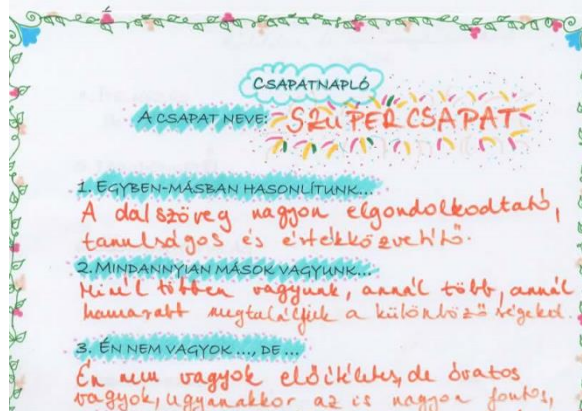 CSAPATNAPLÓ
A CSAPAT NEVE: SZUPERCSAPAT
1. EGYBEN-MÁSBAN HASONLÍTUNK...
A dalszöveg nagyon elgondolkodtató,
tanulságos és értékközvetítő.
2. MINDANNYIAN MÁSOK VAGYUNK...
Minél többen vagyunk, annál több, annál
hamarabb megtaláljuk a különbözőségeket.
3. ÉN NEM VAGYOK ..., DE ...
Én nem vagyok előítéletes, de óvatos
vagyok, ugyanakkor az is nagyon fontos,